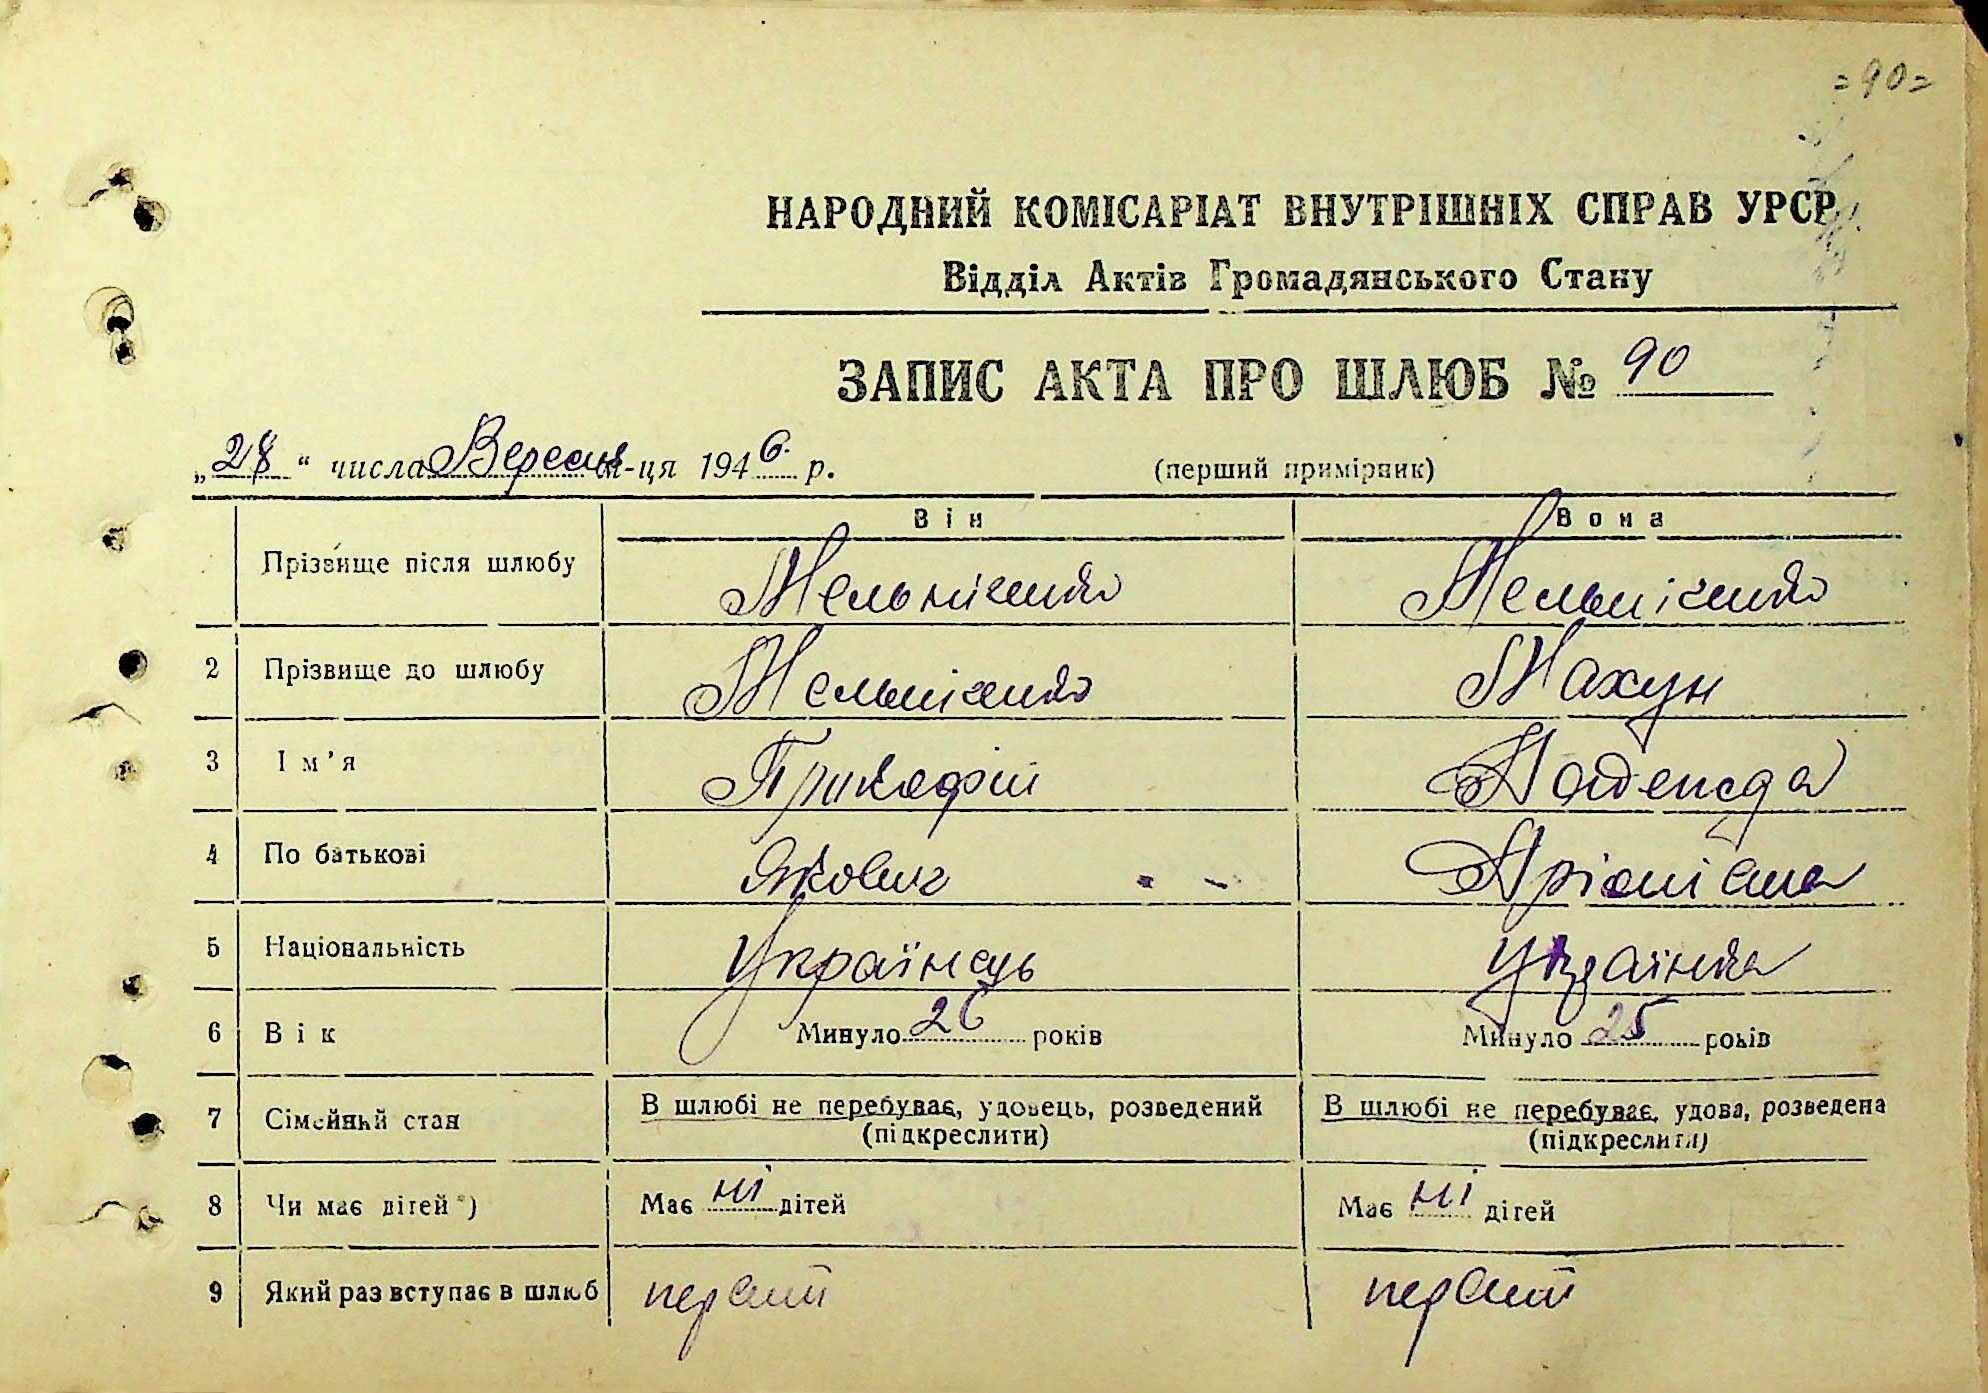 =90=
НАРОДНИЙ КОМІСАРІАТ ВНУТРІШНІХ СПРАВ УРСР
Відділ Актів Громадянського Стану
ЗАПИС АКТА ПРО ШЛЮБ № 90
„28“ числа Вересня м-ця 1946 р. (перший примірник)
Він Вона
Прізвище після шлюбу Мельніченко Мельніченко
2 Прізвище до шлюбу Мельніченко Махун
3 Ім'я Прикофій Надежда
4 По батькові Якович
5 Національність Українець Українка
6 Вік Минуло 26 років Минуло 25 років
7 Сімейний стан В шлюбі не перебуває, удовець, розведений В шлюбі не перебуває, удова, розведена
(підкреслити) (підкреслити)
8 Чи має дітей *) Має ні дітей Має ні дітей
9 Який раз вступає в шлюб первий первий